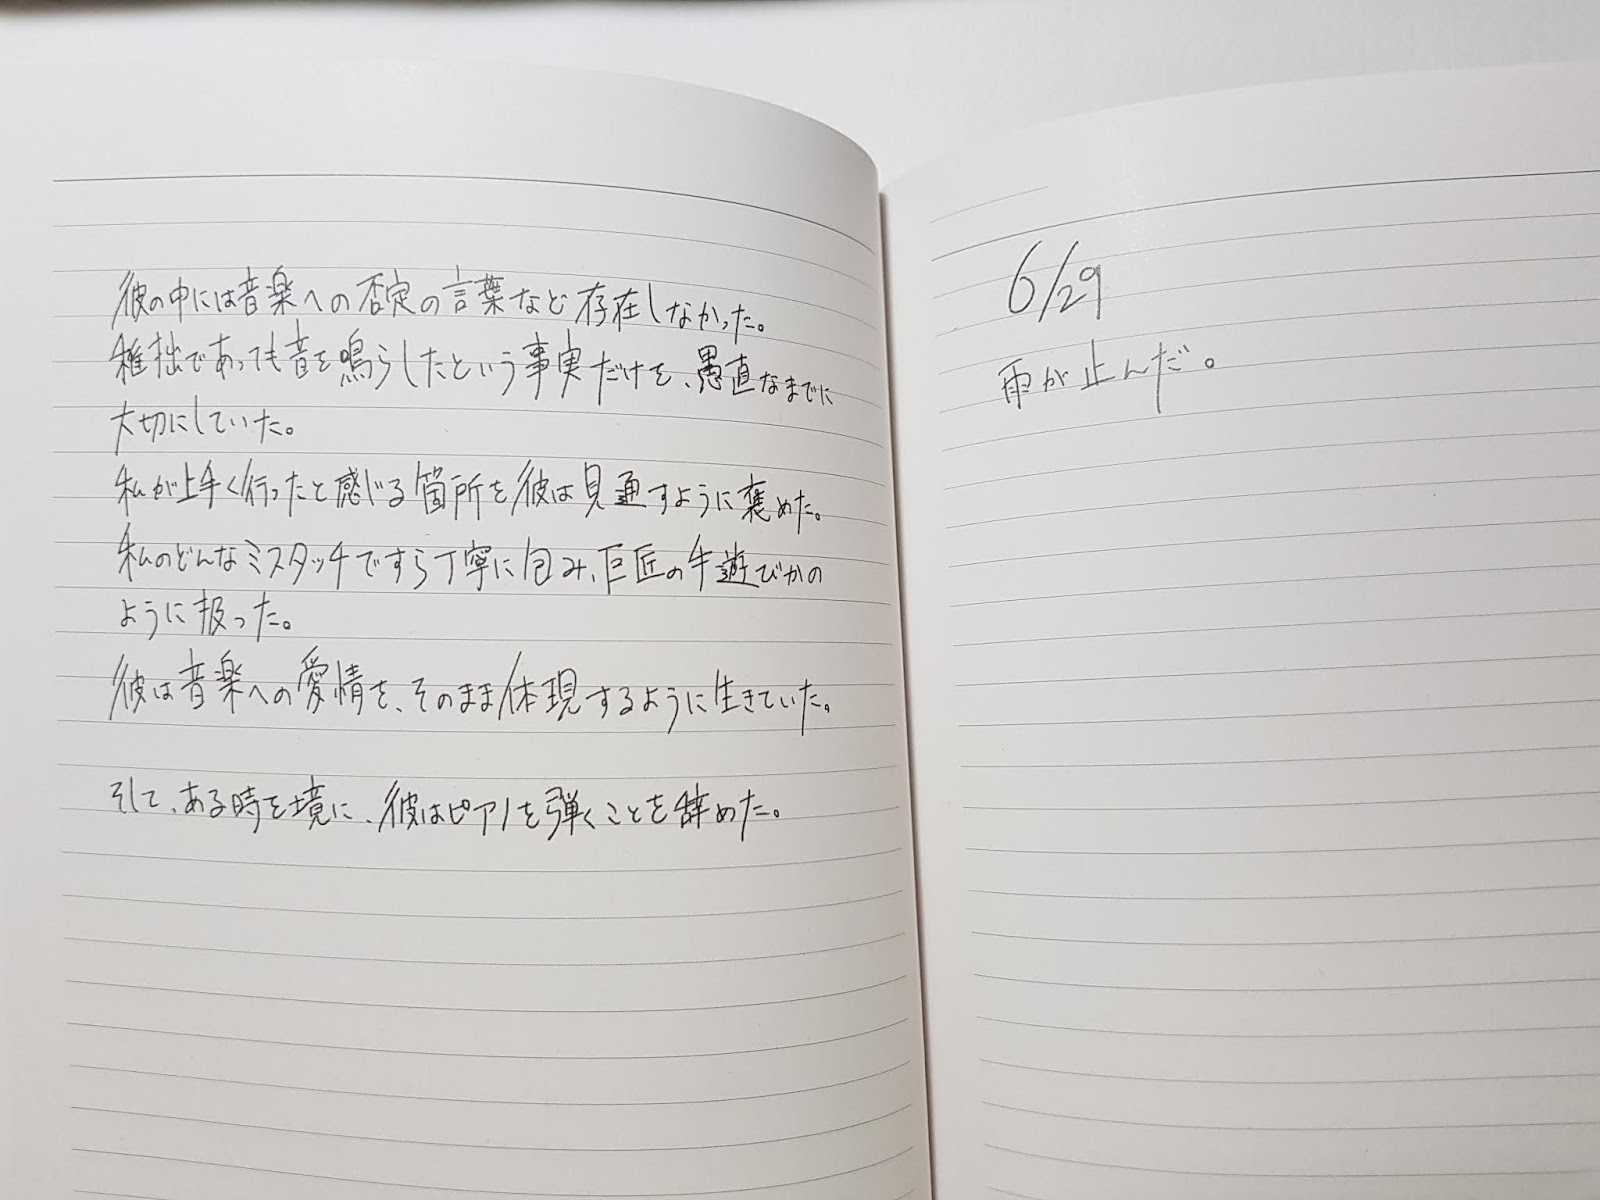 彼の中には音楽への否定の言葉など存在しなかった。
稚拙であっても音を鳴らしたという事実だけを、愚直なまでに
大切にしていた。
私が上手く行ったと感じる箇所を彼は見通すように褒めた。
私のどんなミスタッチですら丁寧に包み、巨匠の手遊びかの
ように扱った。
彼は音楽への愛情を、そのまま体現するように生きていた。
そして、ある時を境に、彼はピアノを弾くことを辞めた。
6/29
雨が止んだ。